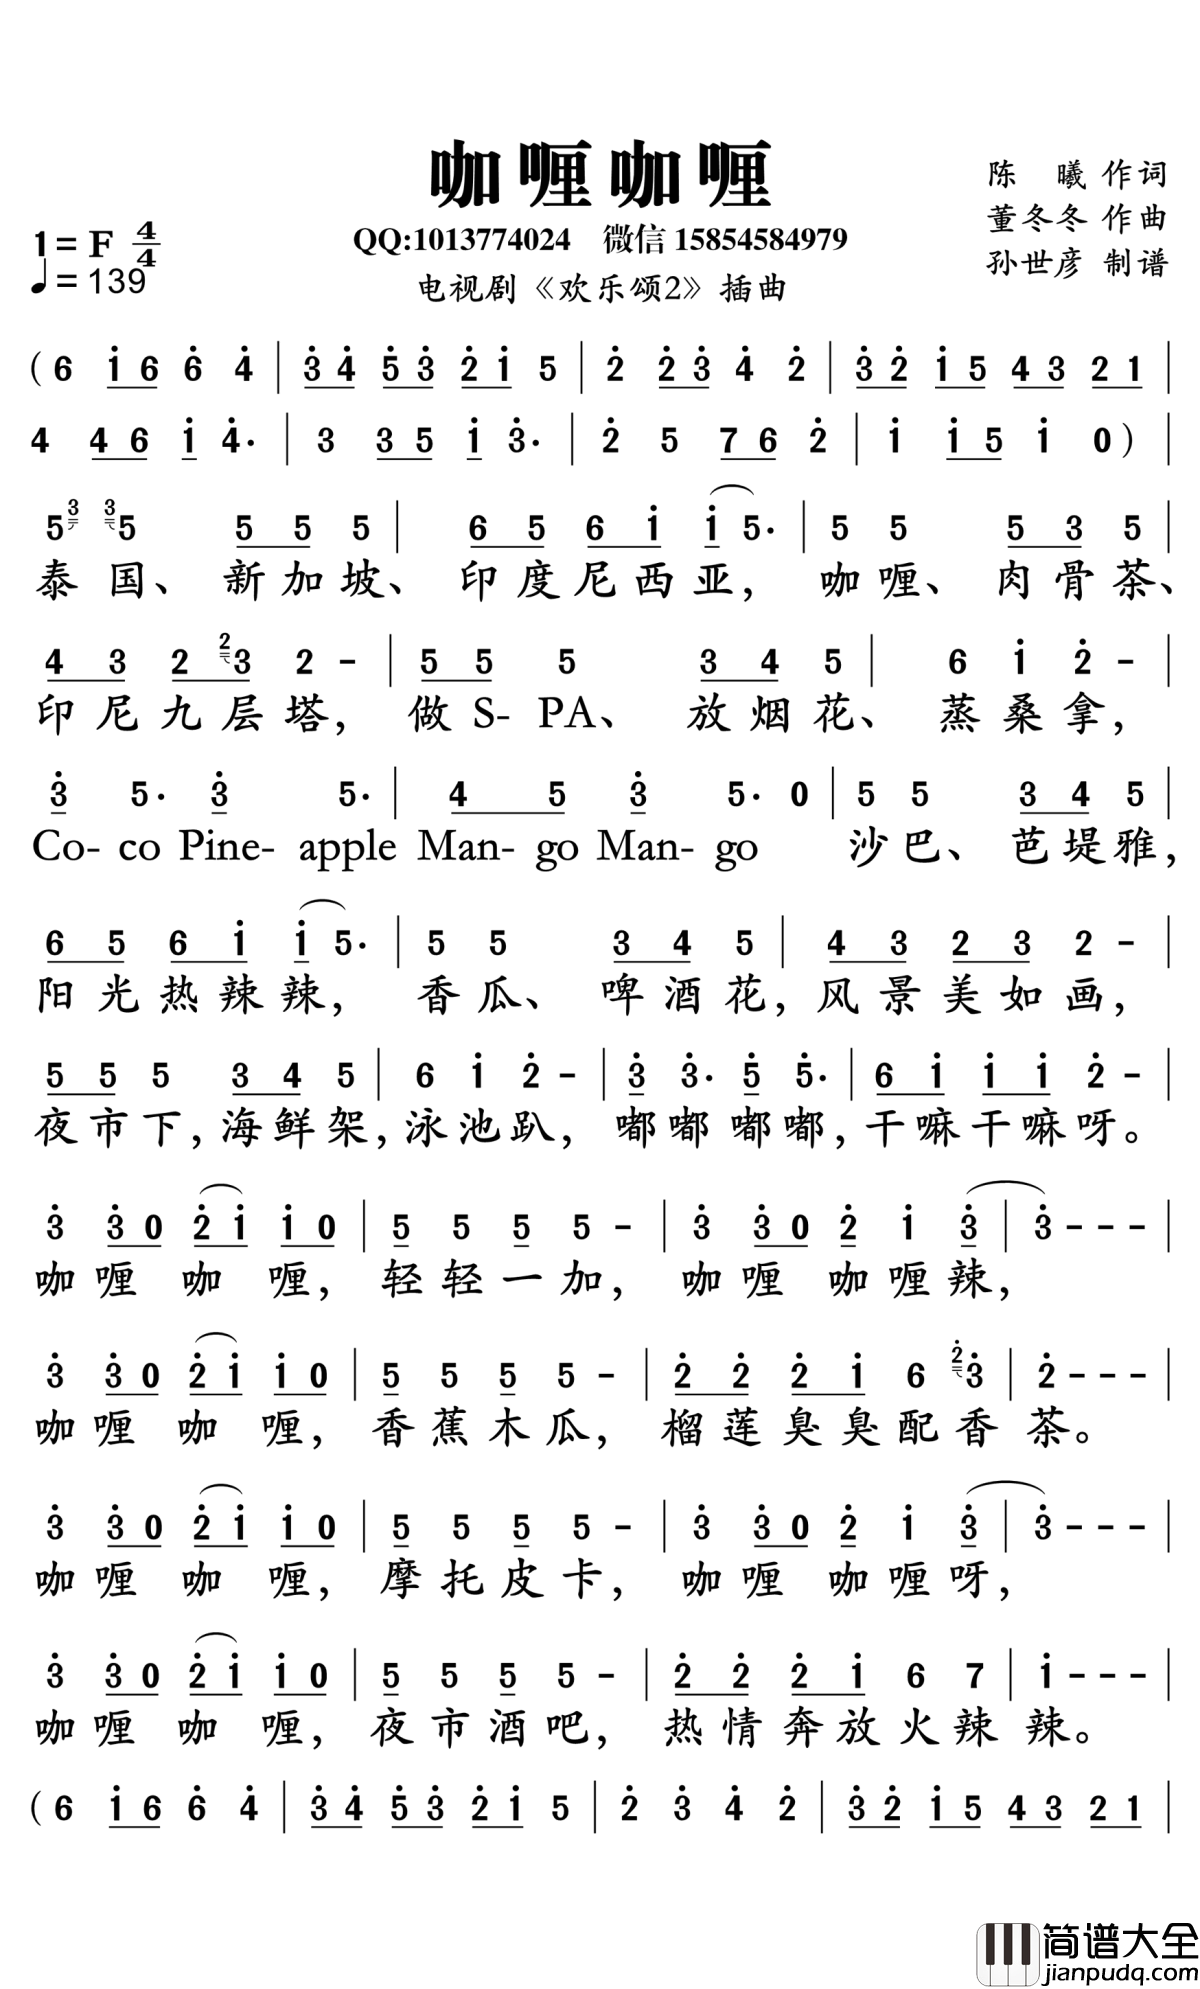 咖喱咖喱
陈 曦 作词
董冬冬 作曲
孙世彦 制谱
1=F 4/4
♩=139
QQ:1013774024 微信 15854584979
电视剧《欢乐颂2》插曲
( 6 i̇ 6 6̇ 4̇ | 3̇ 4̇ 5̇ 3̇ 2̇ i̇ 5 | 2̇ 2̇ 3̇ 4̇ 2̇ | 3̇ 2̇ i̇ 5 4 3 2 1 |
4 4 6 i̇ 4̇. | 3 3 5 i̇ 3̇. | 2̇ 5 7 6 2̇ | i̇ i̇ 5 i̇ 0 ) |
5 3 3 5 5 5 5 | 6 5 6 i̇ i̇ 5. | 5 5 5 3 5 |
泰国、新加坡、印度尼西亚,咖喱、肉骨茶、
4 3 2 2 3 2 - | 5 5 5 3 4 5 | 6 i̇ 2̇ - |
印尼九层塔,做S-PA、放烟花、蒸桑拿,
3̇ 5. 3̇ 5. | 4 5 3̇ 5. 0 | 5 5 3 4 5 |
Co- co Pine- apple Man- go Man- go 沙巴、芭堤雅,
6 5 6 i̇ i̇ 5. | 5 5 3 4 5 | 4 3 2 3 2 - |
阳光热辣辣,香瓜、啤酒花,风景美如画,
5 5 5 3 4 5 | 6 i̇ 2̇ - | 3̇ 3̇. 5̇ 5̇. | 6 i̇ i̇ i̇ 2̇ - |
夜市下,海鲜架,泳池趴,嘟嘟嘟嘟,干嘛干嘛呀。
3̇ 3̇ 0 2̇ i̇ i̇ 0 | 5 5 5 5 - | 3̇ 3̇ 0 2̇ i̇ 3̇ | 3̇ - - - |
咖喱咖喱,轻轻一加,咖喱咖喱辣,
3̇ 3̇ 0 2̇ i̇ i̇ 0 | 5 5 5 5 - | 2̇ 2̇ 2̇ i̇ 6 2̇ 3̇ | 2̇ - - - |
咖喱咖喱,香蕉木瓜,榴莲臭臭配香茶。
3̇ 3̇ 0 2̇ i̇ i̇ 0 | 5 5 5 5 - | 3̇ 3̇ 0 2̇ i̇ 3̇ | 3̇ - - - |
咖喱咖喱,摩托皮卡,咖喱咖喱呀,
3̇ 3̇ 0 2̇ i̇ i̇ 0 | 5 5 5 5 - | 2̇ 2̇ 2̇ i̇ 6 7 | i̇ - - - |
咖喱咖喱,夜市酒吧,热情奔放火辣辣。
( 6 i̇ 6 6̇ 4̇ | 3̇ 4̇ 5̇ 3̇ 2̇ i̇ 5 | 2̇ 3̇ 4̇ 2̇ | 3̇ 2̇ i̇ 5 4 3 2 1 |
简谱大全
jianpudq.com